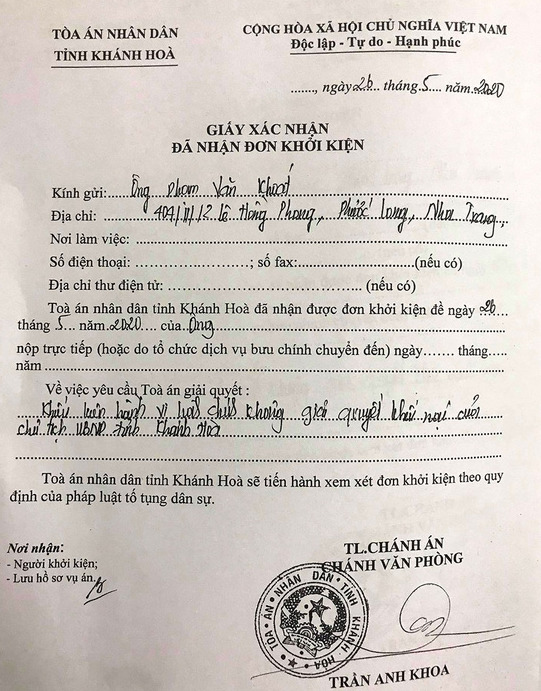 TÒA ÁN NHÂN DÂN
TỈNH KHÁNH HOÀ
CỘNG HÒA XÃ HỘI CHỦ NGHĨA VIỆT NAM
Độc lập - Tự do - Hạnh phúc
......., ngày 26 tháng 5 năm 2020
GIẤY XÁC NHẬN
ĐÃ NHẬN ĐƠN KHỞI KIỆN
Kính gửi: Ông Phạm Văn
Địa chỉ: 404/11/12 Lê Hồng Phong, Phước Long, Nha Trang,
Nơi làm việc:
Số điện thoại: ; số fax: (nếu có)
Địa chỉ thư điện tử: (nếu có)
Toà án nhân dân tỉnh Khánh Hoà đã nhận được đơn khởi kiện đề ngày 26
tháng 5 năm 2020 của Ông
nộp trực tiếp (hoặc do tổ chức dịch vụ bưu chính chuyển đến) ngày....... tháng....
năm
Về việc yêu cầu Toà án giải quyết :
hành vi không giải quyết khiếu nại của
chủ tịch UBND tỉnh Khánh Hoà
Toà án nhân dân tỉnh Khánh Hoà sẽ tiến hành xem xét đơn khởi kiện theo quy
định của pháp luật tố tụng dân sự.
Nơi nhận:
- Người khởi kiện;
- Lưu hồ sơ vụ án.
TL.CHÁNH ÁN
CHÁNH VĂN PHÒNG
TOÀ ÁN NHÂN DÂN TỈNH KHÁNH HÒA
TRẦN ANH KHOA